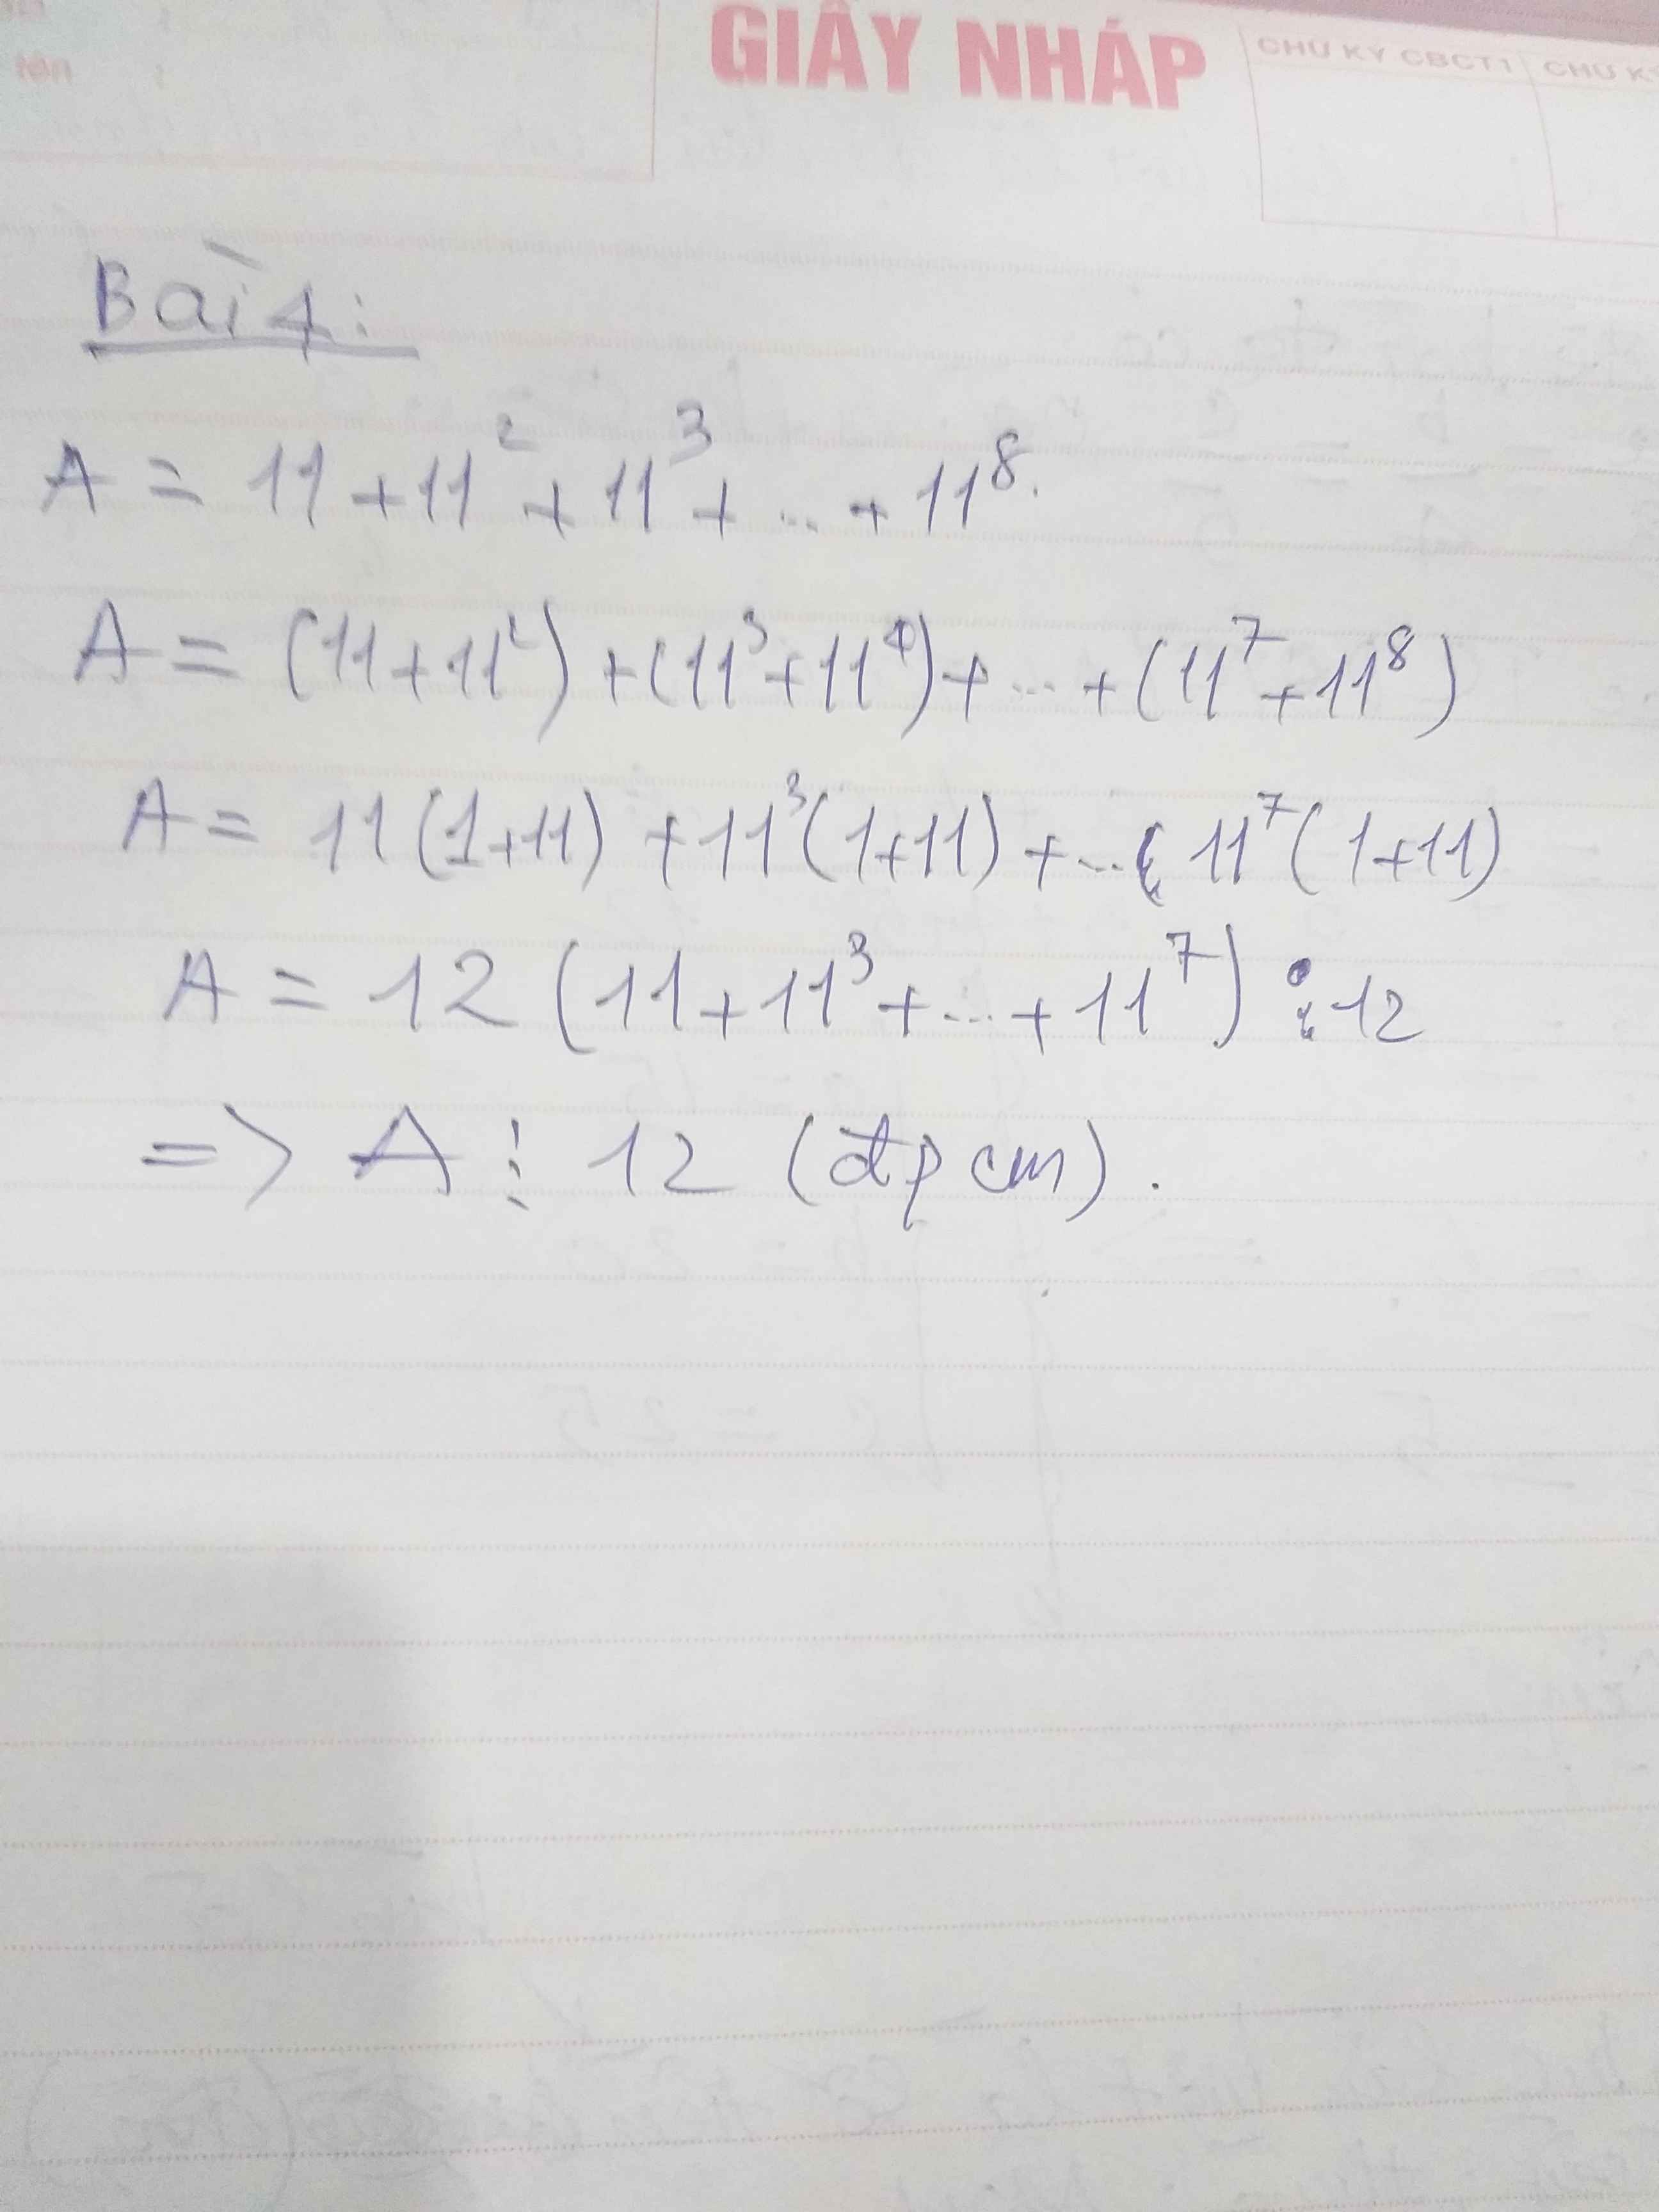 GIẤY NHÁP
CHỮ KÝ CBCT1 CHỮ KÝ
Bài 4:
A = 11 + 11² + 11³ + ... + 11⁸.
A = (11 + 11²) + (11³ + 11⁴) + ... + (11⁷ + 11⁸)
A = 11(1+11) + 11³(1+11) + ... 11⁷(1+11)
A = 12(11 + 11³ + ... + 11⁷) ⋮ 12
=> A ⋮ 12 (đpcm).